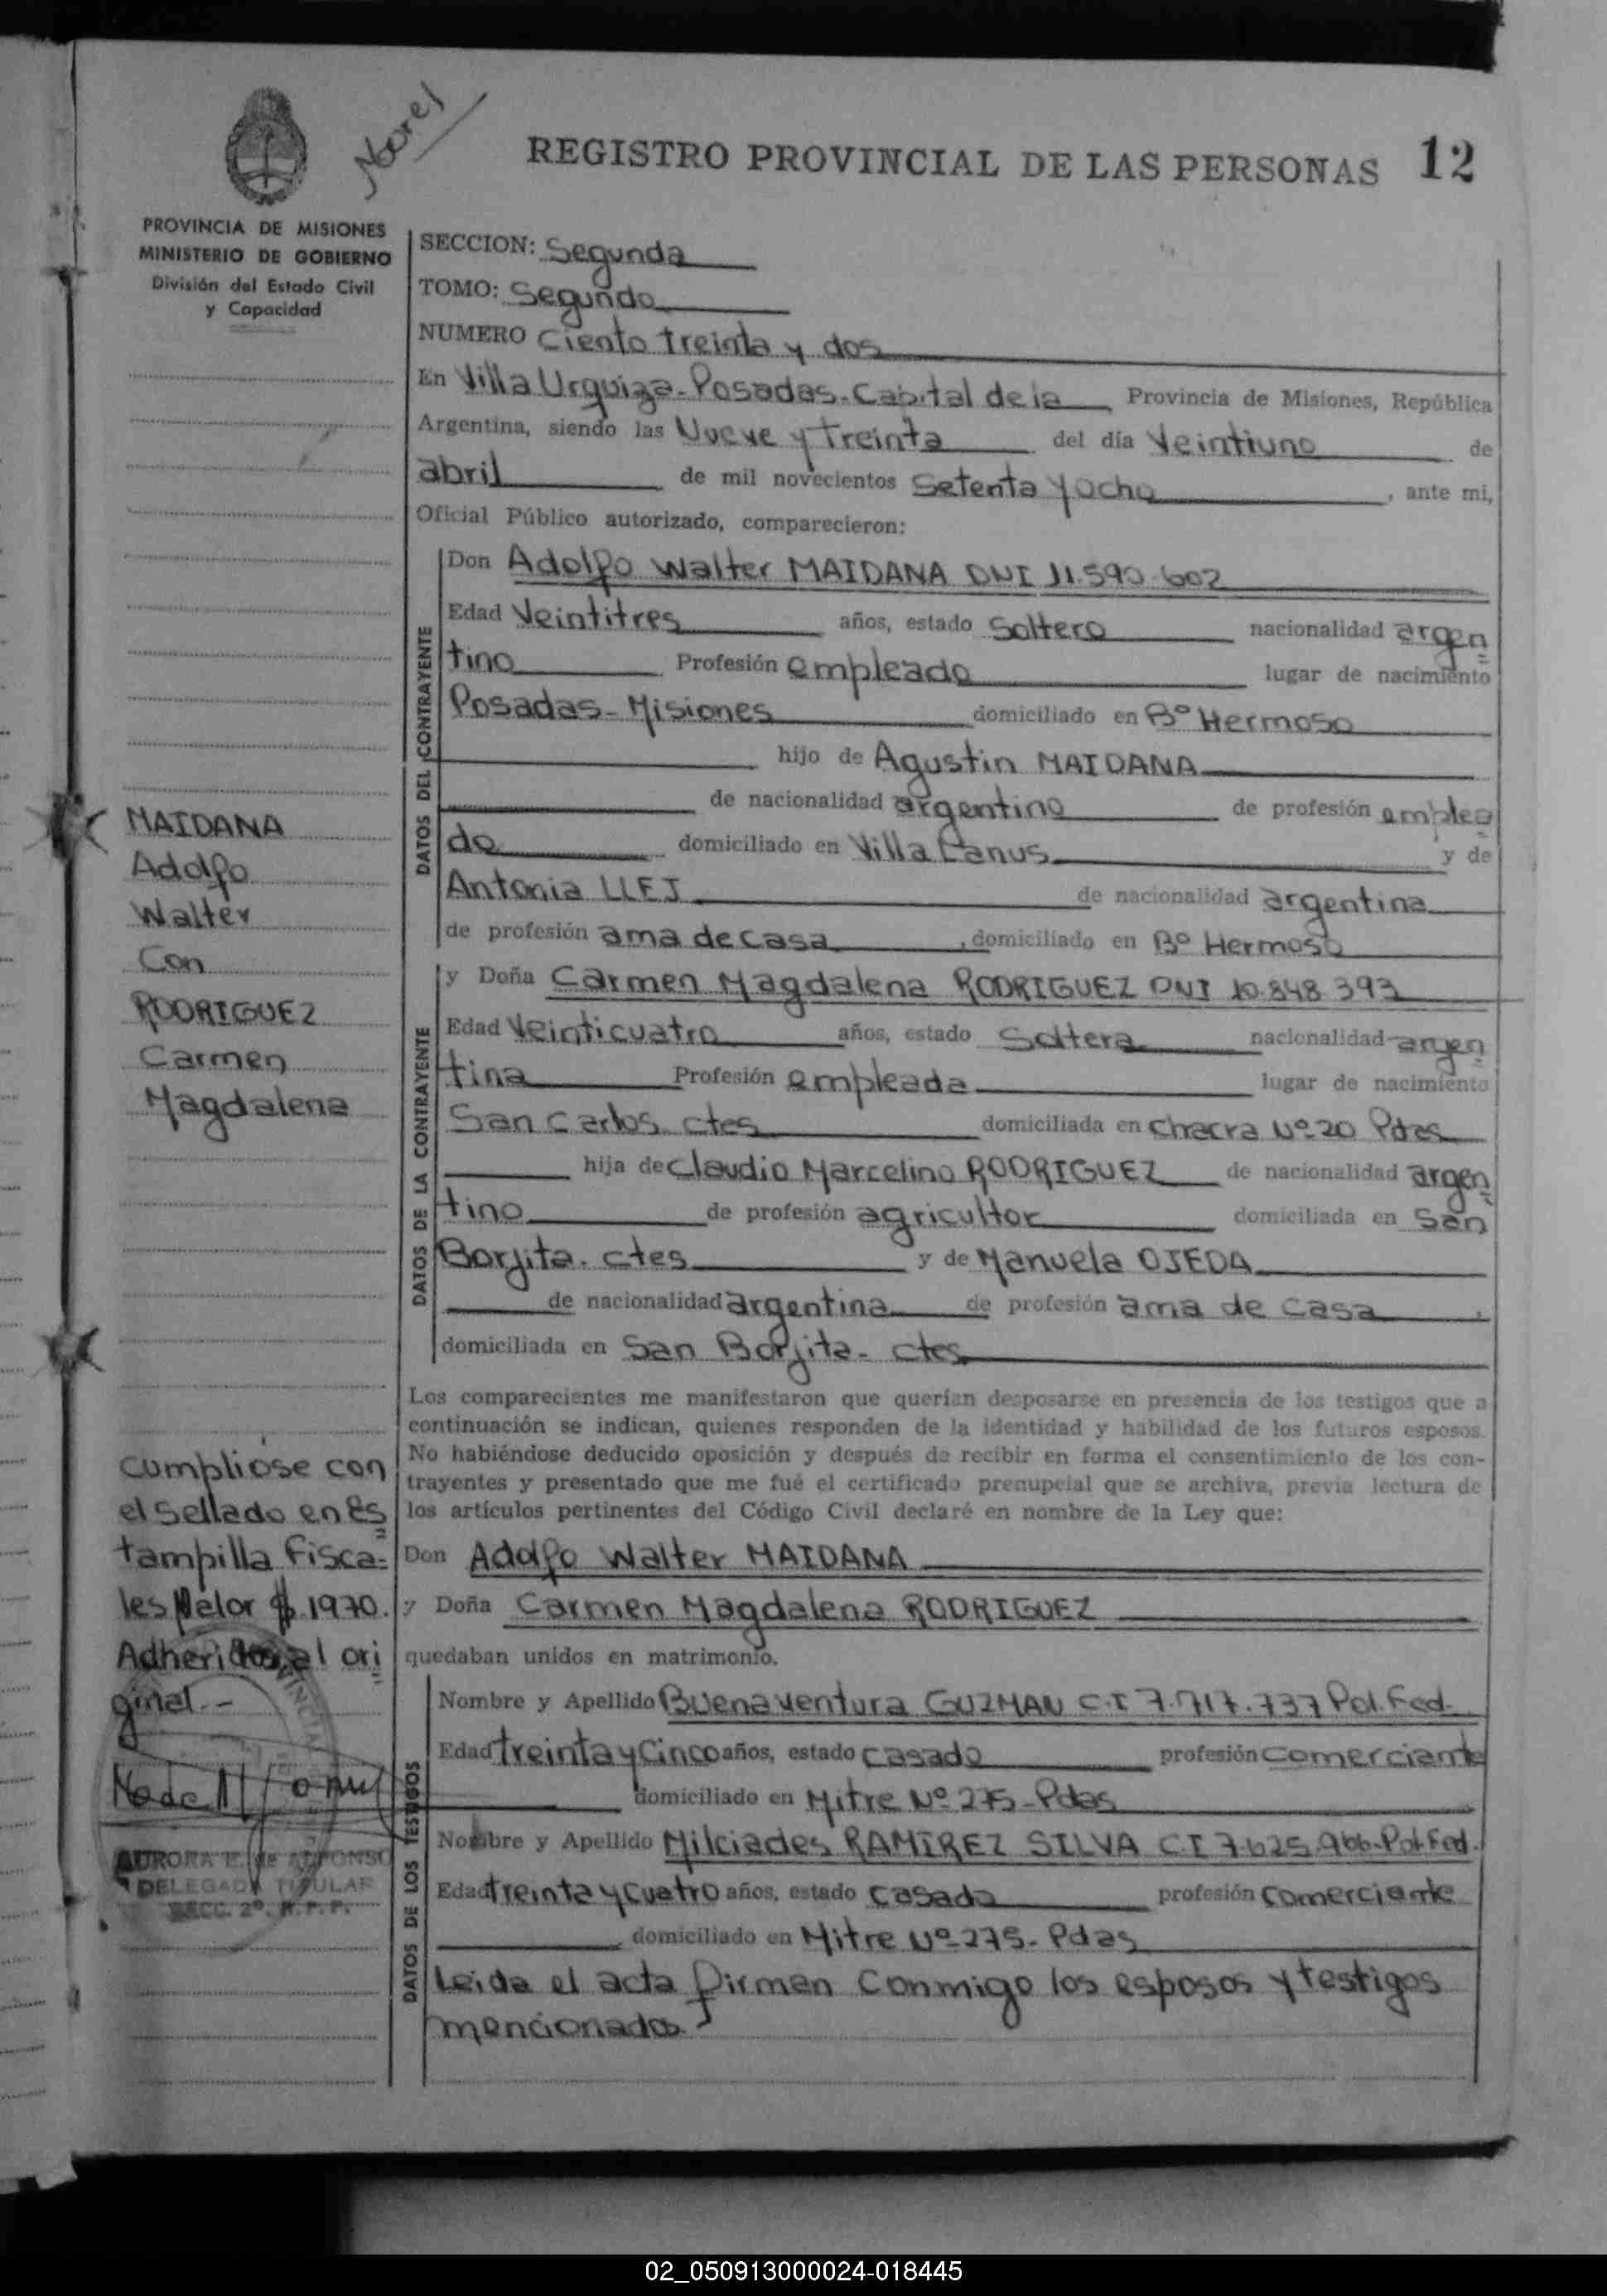 REGISTRO PROVINCIAL DE LAS PERSONAS 12
PROVINCIA DE MISIONES
MINISTERIO DE GOBIERNO
División del Estado Civil
y Capacidad
SECCION: Segunda
TOMO: Segundo
NUMERO Ciento treinta y dos
En Villa Urquiza-Posadas-Capital de la Provincia de Misiones, República
Argentina, siendo las Nueve y Treinta del día Veintiuno de
abril de mil novecientos Setenta y Ocho, ante mi,
Oficial Público autorizado, comparecieron:
DATOS DEL CONTRAYENTE
Don Adolfo Walter MAIDANA DNI 11.590.602
Edad Veintitres años, estado Soltero nacionalidad argen
tino Profesión empleado lugar de nacimiento
Posadas-Misiones domiciliado en Bº Hermoso
hijo de Agustin MAIDANA
de nacionalidad argentino de profesión emplea
do domiciliado en Villa Lanus y de
Antonia LLEJ de nacionalidad argentina
de profesión ama de casa, domiciliado en Bº Hermoso
MAIDANA
Adolfo
Walter
Con
RODRIGUEZ
Carmen
Magdalena
DATOS DE LA CONTRAYENTE
y Doña Carmen Magdalena RODRIGUEZ DNI 10.848.393
Edad Veinticuatro años, estado Soltera nacionalidad argen
tina Profesión empleada lugar de nacimiento
San Carlos ctes domiciliada en Chacra Nº 20 Pdas
hija de Claudio Marcelino RODRIGUEZ de nacionalidad argen
tino de profesión agricultor domiciliada en San
Borjita. ctes y de Manuela OJEDA
de nacionalidad argentina de profesión ama de casa,
domiciliada en San Borjita- ctes
Los comparecientes me manifestaron que querían desposarse en presencia de los testigos que a
continuación se indican, quienes responden de la identidad y habilidad de los futuros esposos.
No habiéndose deducido oposición y después de recibir en forma el consentimiento de los con-
trayentes y presentado que me fué el certificado prenupcial que se archiva, previa lectura de
los artículos pertinentes del Código Civil declaré en nombre de la Ley que:
Don Adolfo Walter MAIDANA
y Doña Carmen Magdalena RODRIGUEZ
quedaban unidos en matrimonio.
cumpliose con
el Sellado en Es
tampilla fisca=
les Valor $ 1970.
Adheridos al ori
ginal.-
AURORA E. de ALFONSO
DELEGADA TITULAR
SECC. 2º. R.P.P.
DATOS DE LOS TESTIGOS
Nombre y Apellido Buenaventura GUZMAN C.I 7.717.737 Pol. Fed.
Edad treinta y Cinco años, estado casado profesión Comerciante
domiciliado en Mitre Nº 275-Pdas
Nombre y Apellido Milciades RAMIREZ SILVA C.I 7.625.966-Pol.Fed.
Edad treinta y Cuatro años, estado casado profesión Comerciante
domiciliado en Mitre Nº 275- Pdas
Leida el acta firman Conmigo los esposos y testigos
mencionados
02_050913000024-018445